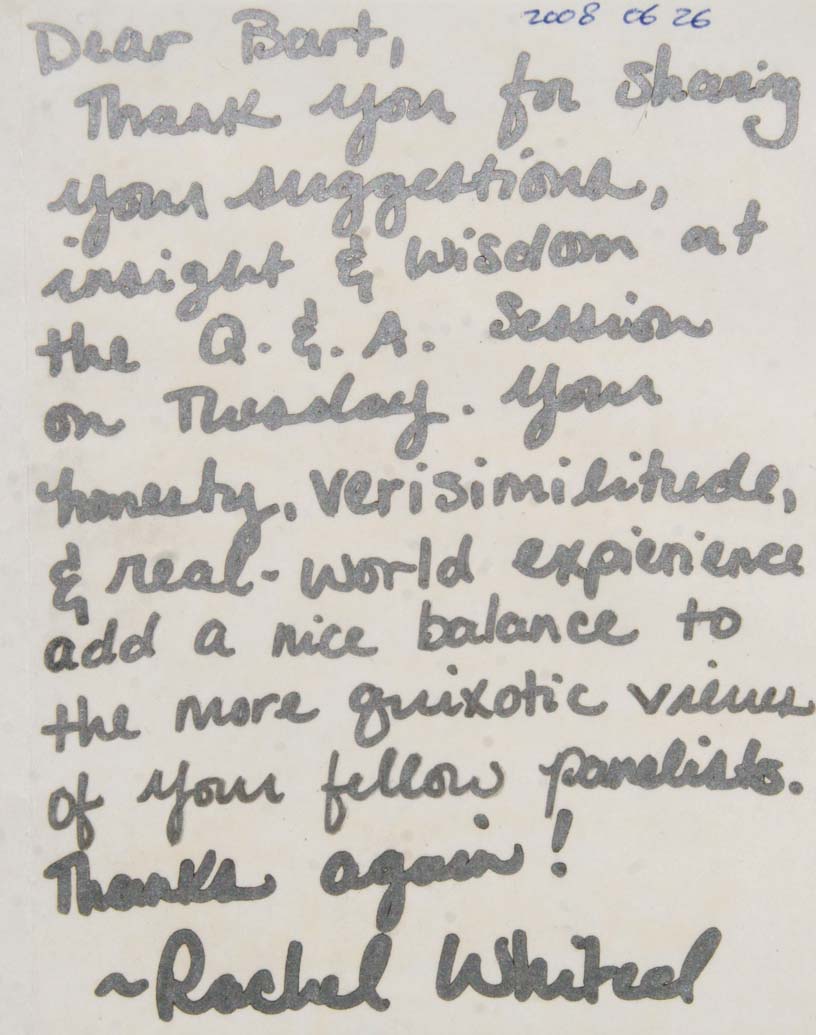 2008 06 26
Dear Bart,
Thank you for sharing
your suggestions,
insight & wisdom at
the Q. & A. Session
on Tuesday. Your
honesty, verisimilitude,
& real-world expierience
add a nice balance to
the more quixotic views
of your fellow panelists.
Thanks again!
~Rachel